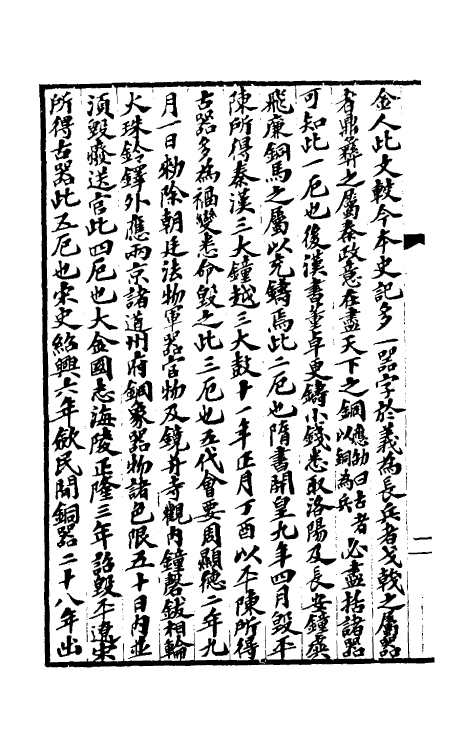 金人此文較今本史記多一器字於義為長兵者戈戟之屬器
者鼎彝之屬秦政意在盡天下之銅應劭曰古者以銅為兵必盡括諸器
可知此一厄也後漢書董卓更鑄小錢悉取洛陽及長安鐘虡
飛廉銅馬之屬以充鑄焉此二厄也隋書開皇九年四月毀平
陳所得秦漢三大鐘越三大鼓十一年正月丁酉以平陳所得
古器多為禍變悉命毀之此三厄也五代會要周顯德二年九
月一日勅除朝廷法物軍器官物及鏡并寺觀內鐘磬鈸相輪
火珠鈴鐸外應兩京諸道州府銅象器物諸色限五十日內並
須毀廢送官此四厄也大金國志海陵正隆三年詔毀平遼宋
所得古器此五厄也宋史紹興六年斂民間銅器二十八年出
一